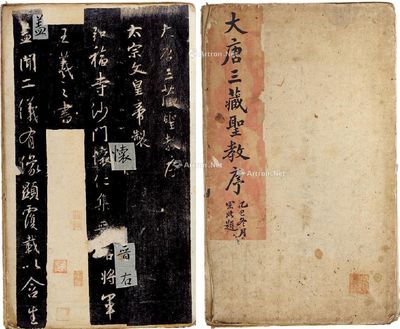 大唐三藏聖教序
太宗文皇帝製
弘福寺沙門懷仁集晉右將軍
王羲之書
蓋聞二儀有像顯覆載以含生
懷
晉右
蓋
大唐三藏聖教序
Artron.Net
Artron.Net